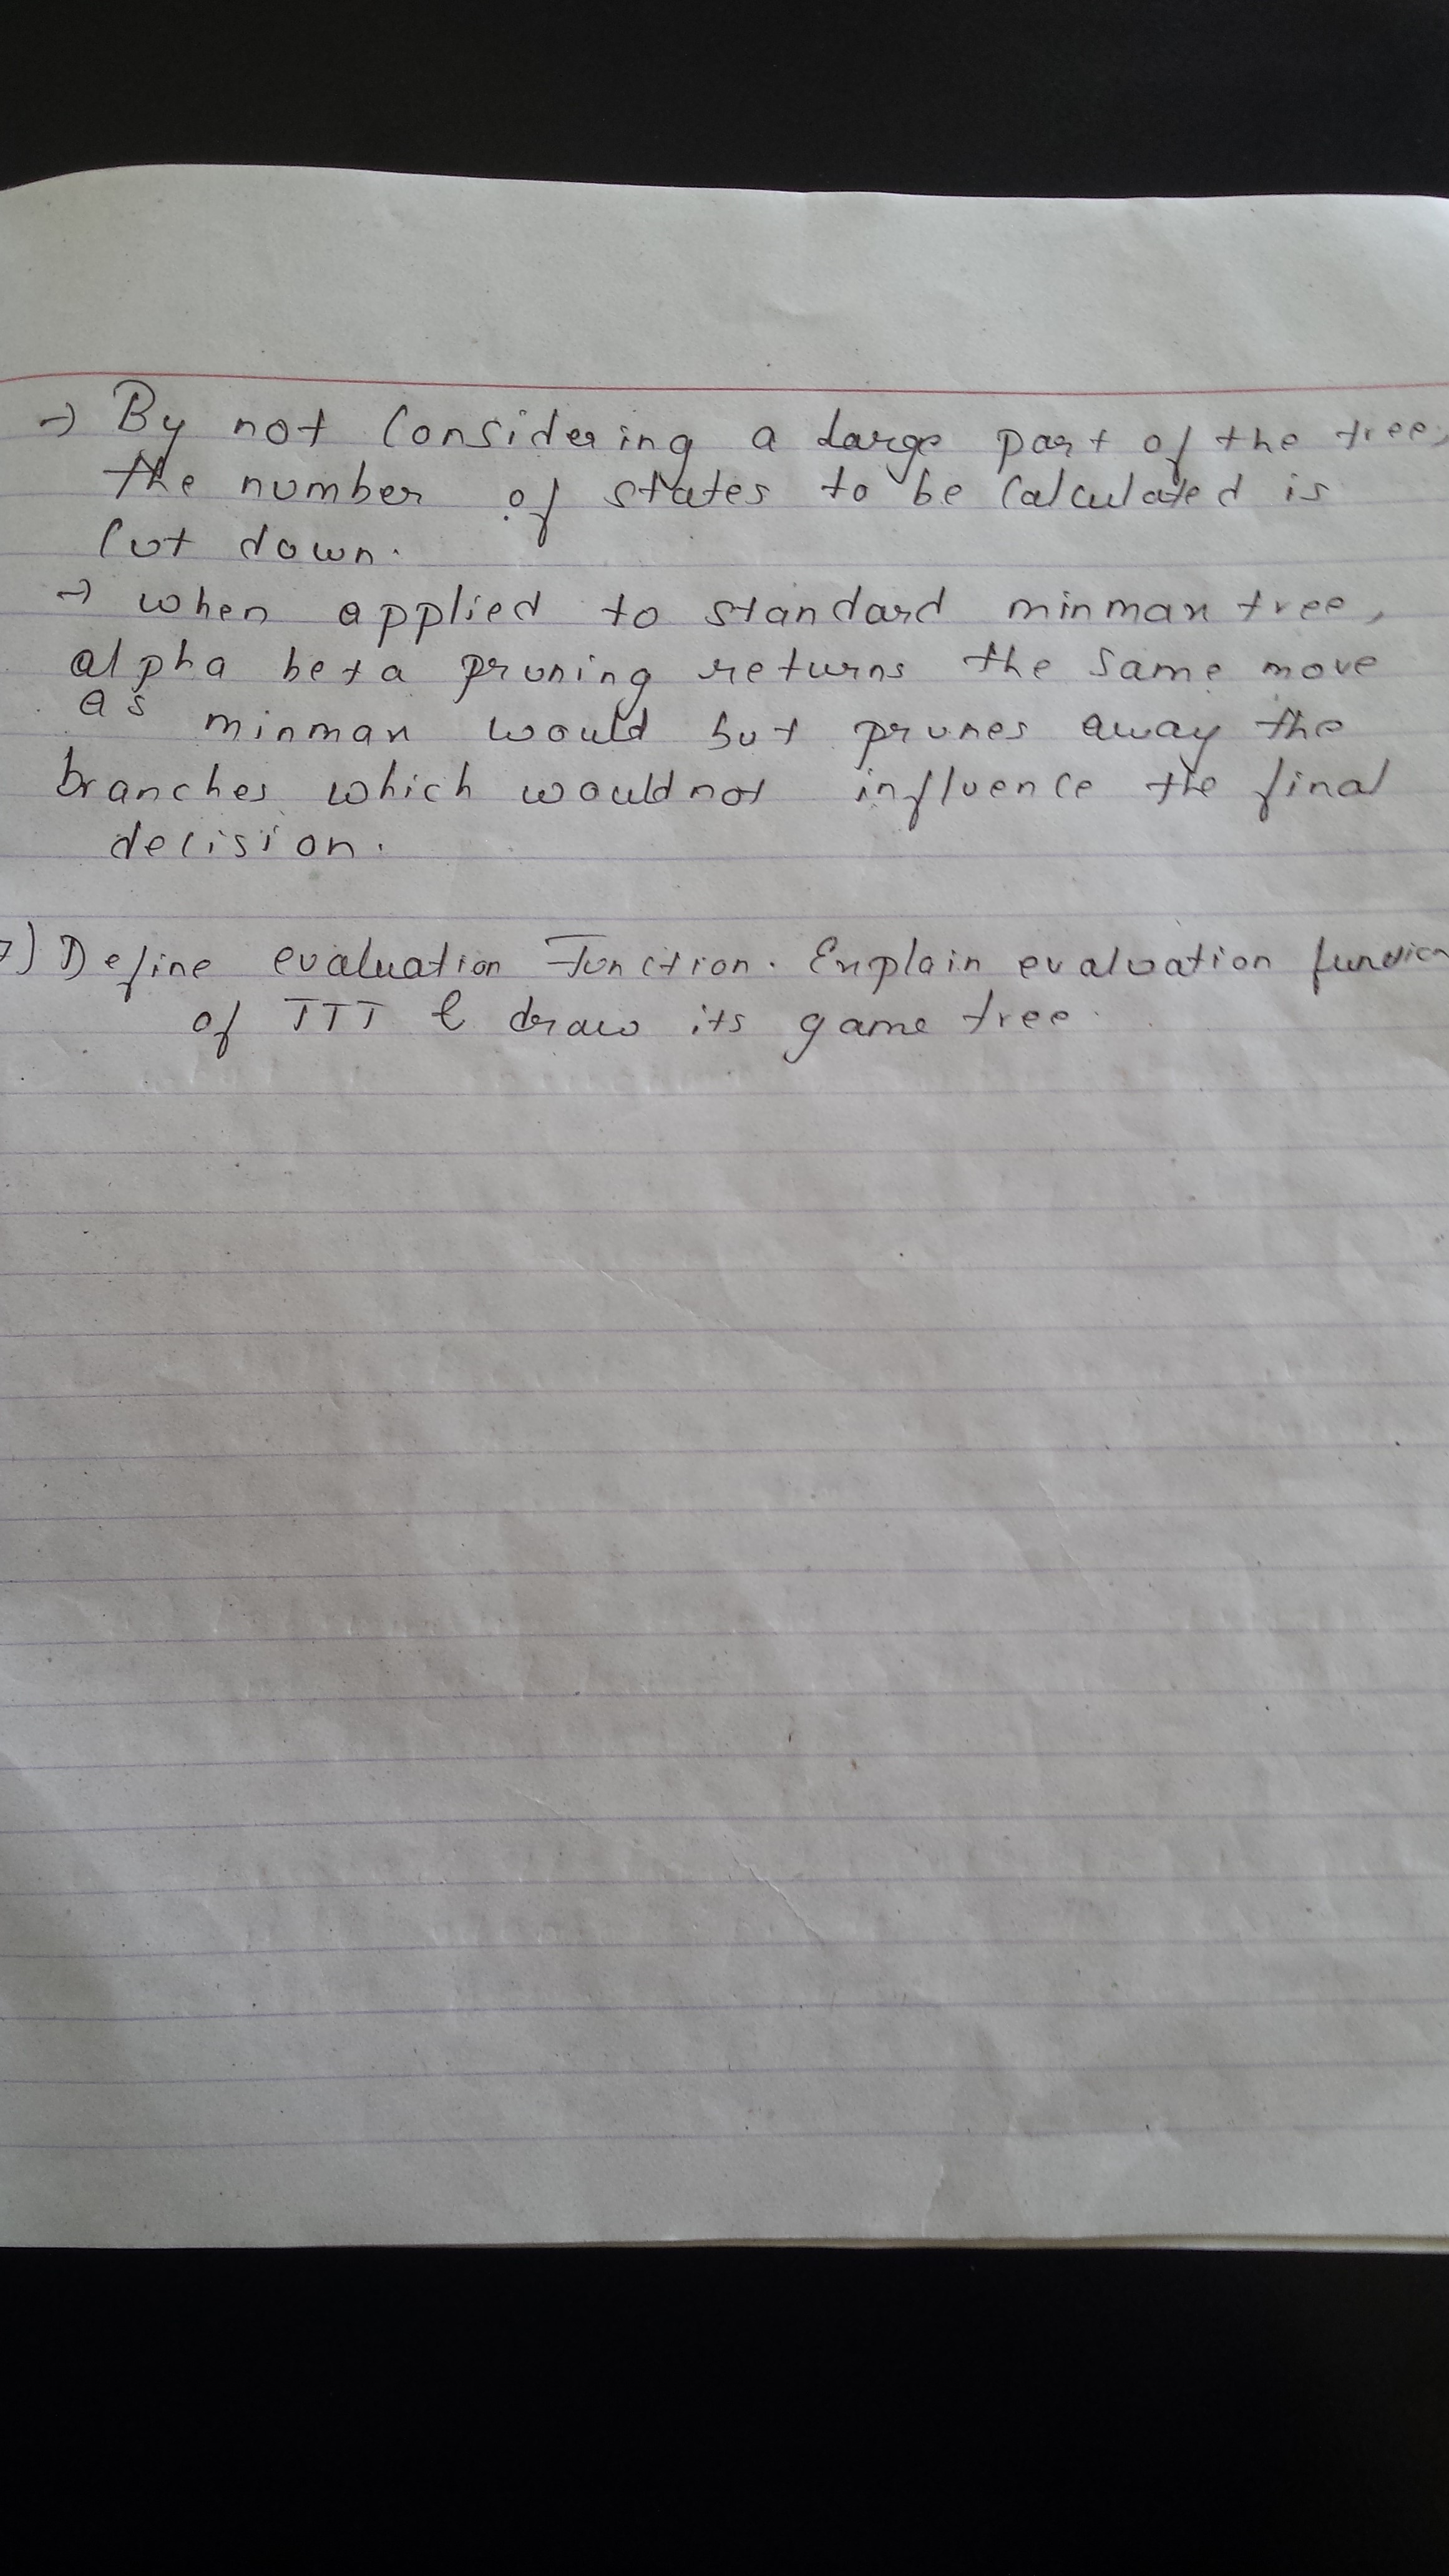 → By not Considering a large part of the tree,
the number of states to be Calculated is
Cut down.
→ when applied to standard minmax tree,
alpha beta pruning returns the same move
as minmax would but prunes away the
branches which would not influence the final
decision.
7) Define evaluation Function. Explain evaluation function
of TTT & draw its game tree.